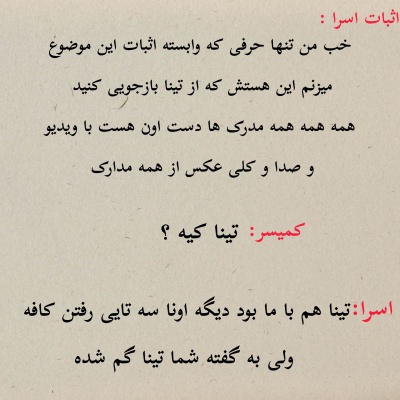 اثبات اسرا :
خب من تنها حرفی که وابسته اثبات این موضوع
میزنم این هستش که از تینا بازجویی کنید
همه همه همه مدرک ها دست اون هست با ویدیو
و صدا و کلی عکس از همه مدارک
کمیسر: تینا کیه ؟
اسرا:تینا هم با ما بود دیگه اونا سه تایی رفتن کافه
ولی به گفته شما تینا گم شده